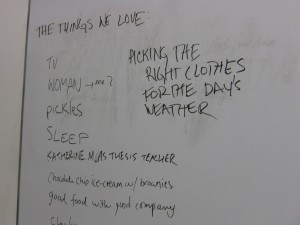 THE THINGS WE LOVE:
TV
WOMAN → me?
pickles
SLEEP
KATHERINE M. AS THESIS TEACHER
Chocolate chip ice-cream w/ brownies
good food with good company
PICKING THE
RIGHT CLOTHES
FOR THE DAY'S
WEATHER